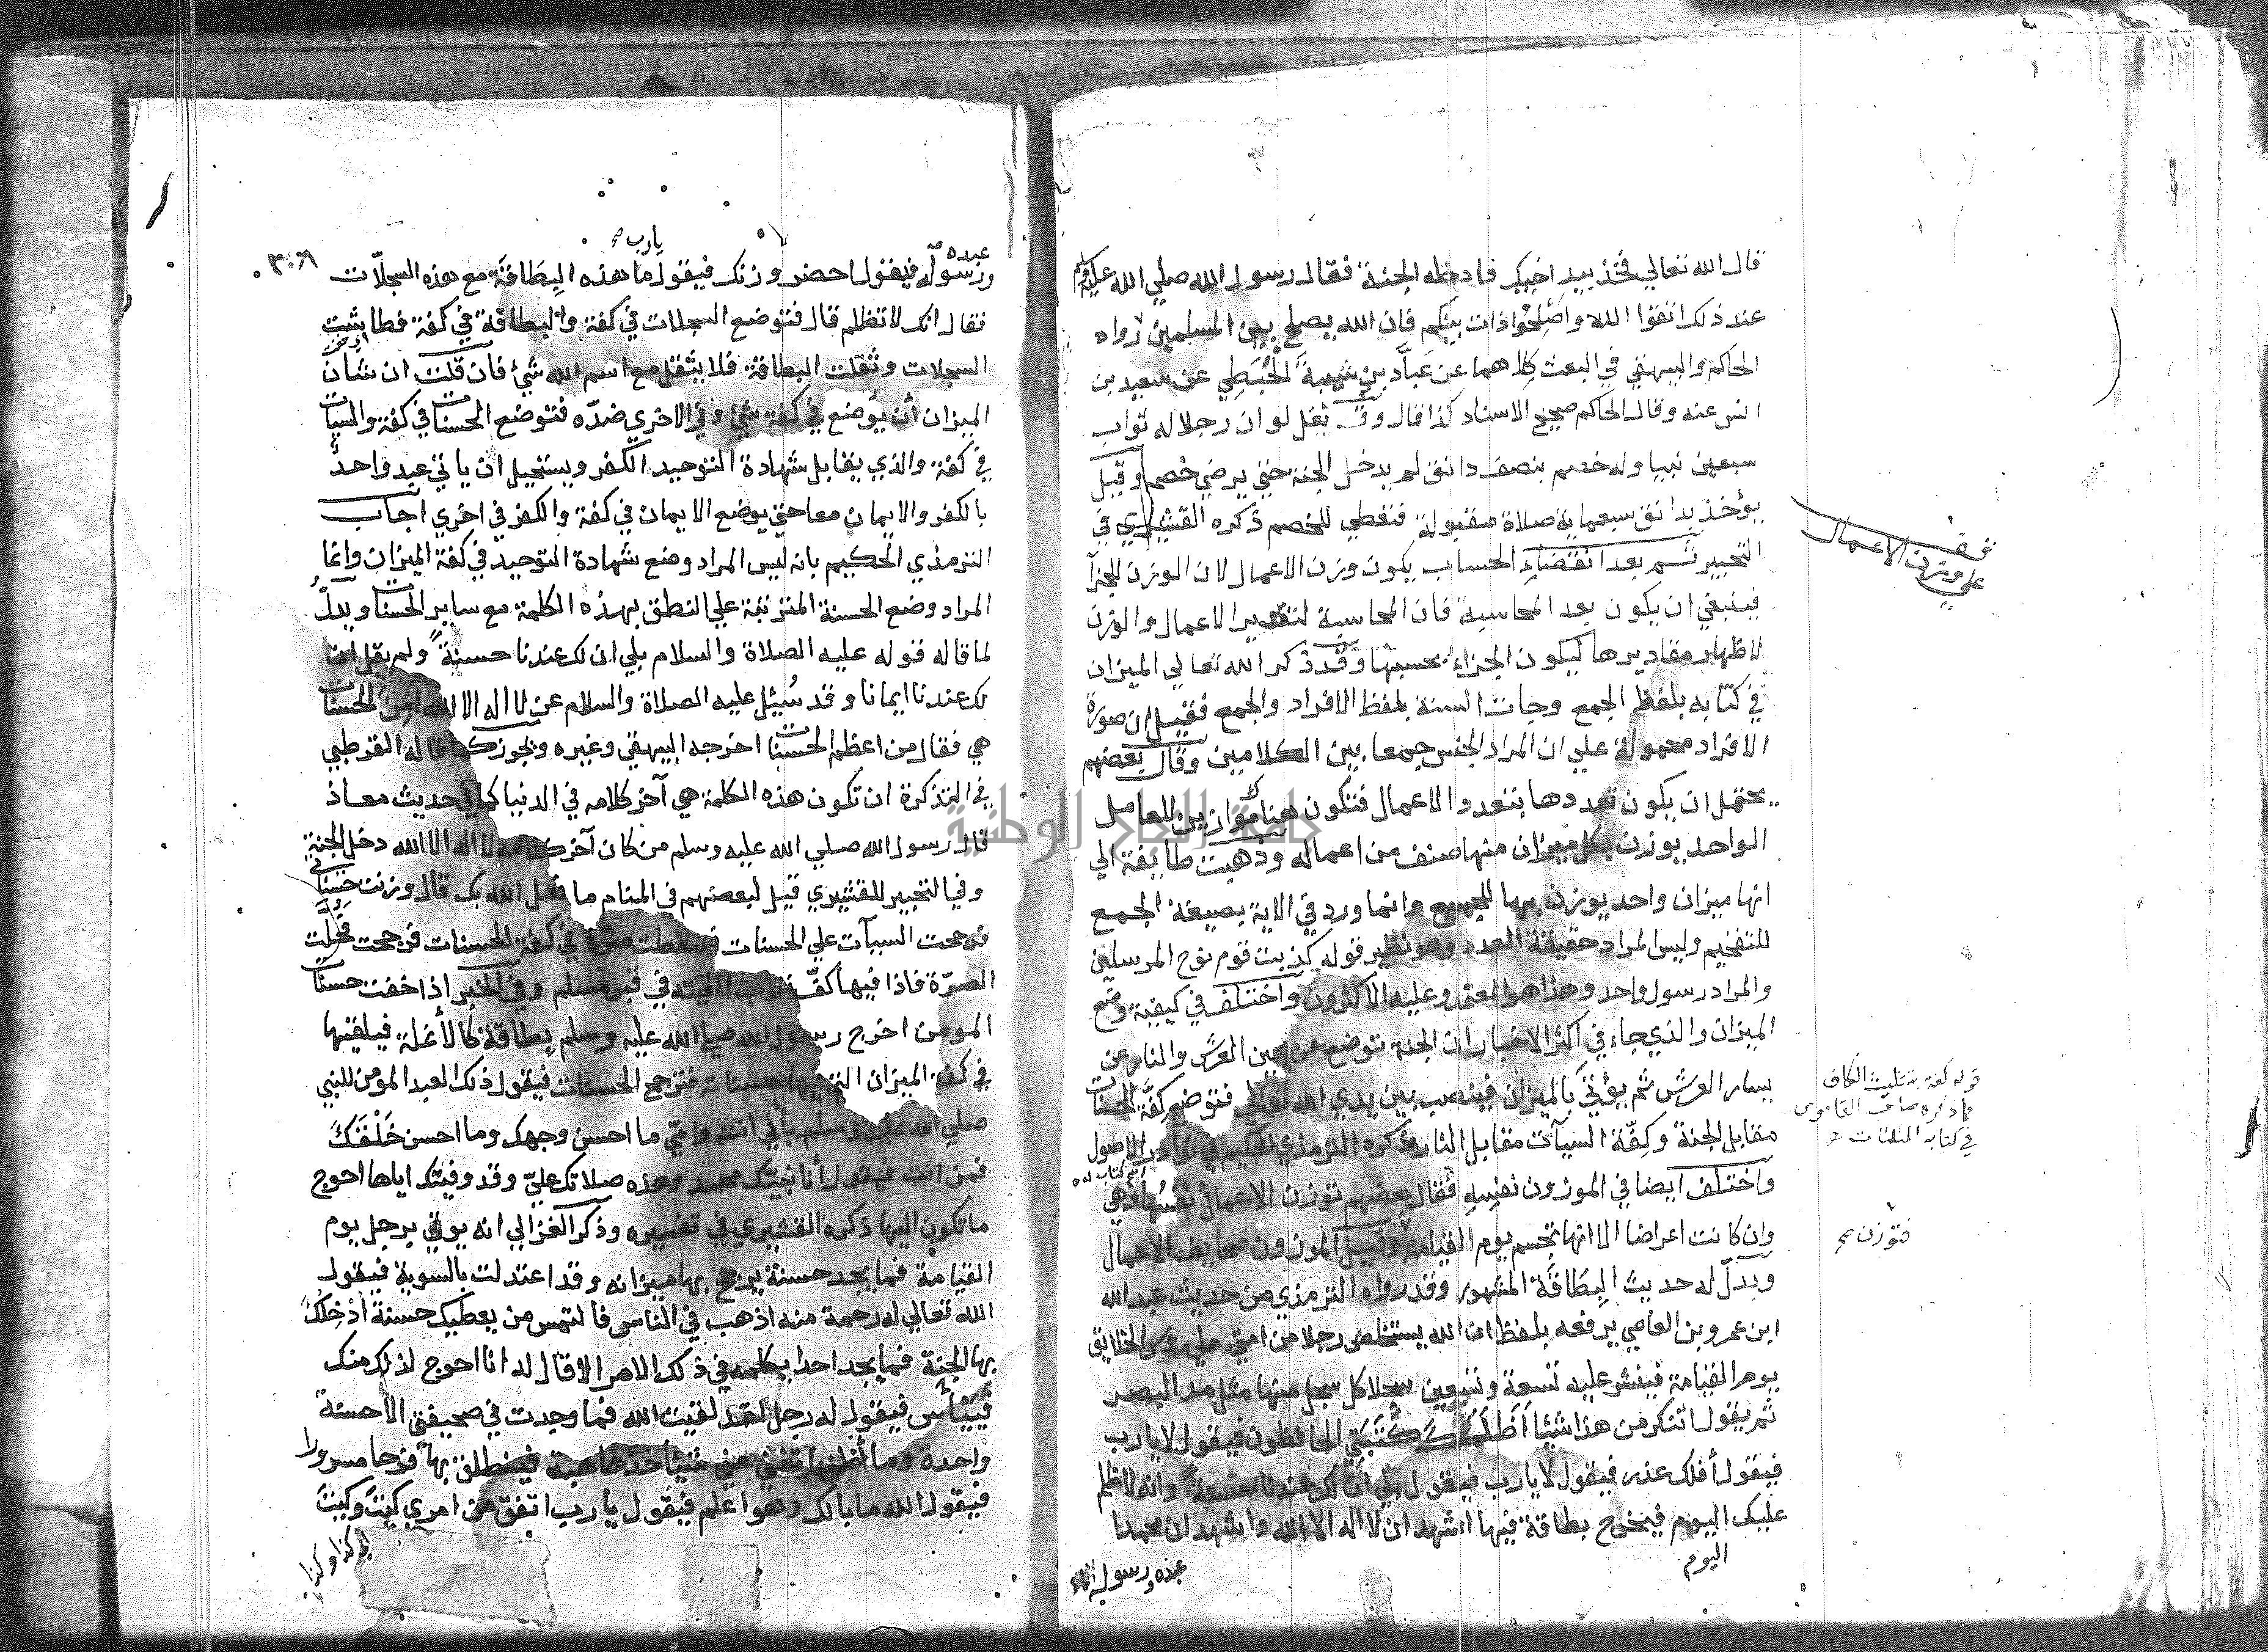 قال الله تعالي فخذ بيد اخيك فادخله الجنة فقال رسول الله صلي الله عليه وسلم
عند ذلك اتقوا الله واصلحوا ذات بينكم فان الله يصلح بين المسلمين رواه
الحاكم والبيهقي في البعث كلاهما عن عباد بن شيبة الحبطي عن سعيد بن
انس عنه وقال الحاكم صحيح الاسناد كذا قال وقد نقل لو ان رجلا له ثواب
سبعين نبيا وله خصم بنصف دانق لم يدخل الجنة حتي يرضي خصمه وقيل
يؤخذ بدانق سبعماية صلاة مقبولة فتعطي للخصم ذكره القشيري في
التحبير ثم بعد انقضاء الحساب يكون وزن الاعمال لان الوزن للجزآ
فينبغي ان يكون بعد المحاسبة فان المحاسبة لتقدير الاعمال والوزن
لاظهار مقاديرها ليكون الجزاء بحسبها وقد ذكر الله تعالي الميزان
في كتابه بلفظ الجمع وجات السنة بلفظ الافراد والجمع فقيل ان صورة
الافراد محمولة علي ان المراد الجنس جمعا بين الكلامين وقال بعضهم
يحتمل ان يكون تعددها بتعدد الاعمال فتكون هناك موازين للعامل
الواحد يوزن بكل ميزان منها صنف من اعماله وذهبت طايفة الي
انها ميزان واحد يوزن بها للجميع وانما ورد في الاية بصيغة الجمع
للتفخيم وليس المراد حقيقة العدد وهو نظير قوله كذبت قوم نوح المرسلين
والمراد رسول واحد وهذا هو المعتمد وعليه الاكثرون واختلف في كيفية وضع
الميزان والذي جاء في اكثر الاخبار ان الجنة توضع عن يمين العرش والنار عن
يسار العرش ثم يؤتي بالميزان فينصب بين يدي الله تعالي فتوضع كفة الحسنات
مقابل الجنة وكفة السيآت مقابل النار ذكره الترمذي الحكيم في نوادر الاصول
واختلف ايضا في الموزون نفسه فقال بعضهم توزن الاعمال نفسها وهي
وان كانت اعراضا الا انها تجسم يوم القيامة وقيل الموزون صحايف الاعمال
ويدل له حديث البطاقة المشهور وقد رواه الترمذي من حديث عبد الله
ابن عمرو بن العاصي يرفعه بلفظ ان الله يستخلص رجلا من امتي علي روس الخلايق
يوم القيامة فينشر عليه تسعة وتسعين سجلا كل سجل منها مثل مد البصر
ثم يقول اتنكر من هذا شيئا أظلمك كتبتي الحافظون فيقول لا يا رب
فيقول أفلك عذر فيقول لا يا رب فيقول بلي ان لك عندنا حسنة وانه لا ظلم
عليك اليوم فيخرج بطاقة فيها اشهد ان لا اله الا الله واشهد ان محمدا
اليوم
عبده ورسوله
قف
علي وزن الاعمال
قوله كفة بتثليث الكاف
كما ذكره صاحب القاموس
في كتابه المثلثات
فتوزن صح
عبده
يا رب صح
ورسوله فيقول احضر وزنك فيقول ما هذه البطاقة مع هذه السجلات
فقال انك لا تظلم قال فتوضع السجلات في كفة والبطاقة في كفة فطاشت
السجلات وثقلت البطاقة فلا يثقل مع اسم الله شئ فان قلت ان شان
الميزان أن يوضع في كفته شئ وفي الاخري ضده فتوضع الحسنات في كفة والسيات
في كفة والذي يقابل شهادة التوحيد الكفر ويستحيل ان ياتي عبد واحد
بالكفر والايمان معا حتي يوضع الايمان في كفة والكفر في اخري اجاب
الترمذي الحكيم بانه ليس المراد وضع شهادة التوحيد في كفة الميزان وانما
المراد وضع الحسنة المترتبة علي النطق بهذه الكلمة مع ساير الحسنات ويدل
لما قاله قوله عليه الصلاة والسلام بلي ان لك عندنا حسنة ولم يقل ان
لك عندنا ايمانا وقد سئل عليه الصلاة والسلام عن لا اله الا الله امن الحسنات
هي فقال من اعظم الحسنات اخرجه البيهقي وغيره ويجوز كما قاله القرطبي
في التذكرة ان تكون هذه الكلمة هي آخر كلامه في الدنيا كما في حديث معاذ
قال رسول الله صلي الله عليه وسلم من كان آخر كلامه لا اله الا الله دخل الجنة
وفي التحبير للقشيري قيل لبعضهم في المنام ما فعل الله بك قال وزنت حسناتي
فرجحت السيآت علي الحسنات فسقطت صرة في كفة الحسنات فرجحت فحلت
الصرة فاذا فيها كف تراب القيته في قبر مسلم وفي الخبر اذا خفت حسنات
المومن اخرج رسول الله صلي الله عليه وسلم بطاقة كالانملة فيلقيها
في كفة الميزان التي فيها حسناته فترجح الحسنات فيقول ذلك العبد المومن للنبي
صلي الله عليه وسلم بأبي انت وامي ما احسن وجهك وما احسن خلقك
فمن انت فيقول أنا نبيك محمد وهذه صلاتك علي وقد وفيتك اياها احوج
ما تكون اليها ذكره القشيري في تفسيره وذكر الغزالي انه يوتي برجل يوم
القيامة فما يجد حسنة يرجح بها ميزانه وقد اعتدلت بالسوية فيقول
الله تعالي له رحمة منه اذهب في الناس فالتمس من يعطيك حسنة ادخلك
بها الجنة فما يجد احدا يكلمه في ذلك الامر الا قال له انا احوج لذلك منك
فييأس فيقول له رجل لقد لقيت الله فما وجدت في صحيفتي الا حسنة
واحدة وما أظنها تغني عني شيئا خذها هبة فينطلق بها فرحا مسرورا
فيقول الله ما بالك وهو اعلم فيقول يا رب اتفق من امري كيت وكيت
اي كذا وكذا
جامعة النجاح الوطنية